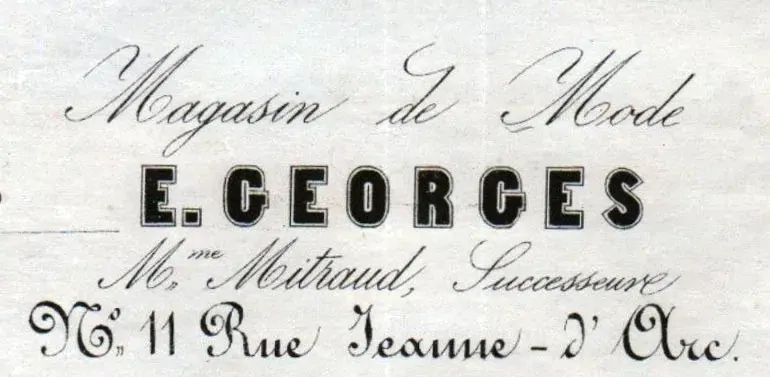 Magasin de Mode
E. GEORGES
Mme Mitraud, Successeure
No. 11 Rue Jeanne - d'Arc.